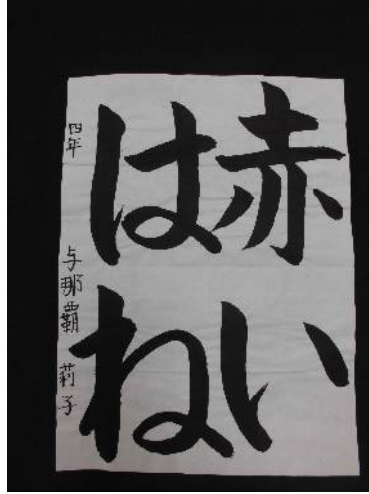 赤い
はね
四年 与那覇 莉子